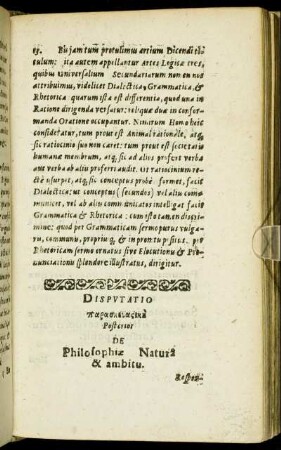 13. Et jam tum protulimus artium Dicendi titulum; ita autem appellantur Artes Logicæ tres,
quibus Universalium Secundariarum non
attribuimus, videlicet Dialectica, Grammatica, &
Rhetorica quarum ista est differentia, quod una in
Ratione dirigenda versatur: reliquæ duæ in confor-
manda Oratione occupantur. Nimirum Homo heic
consideratur, tum prout est Animal rationale, atq,
sic ratiocinio suo non caret: tum prout est societatis
humanæ membrum, atq, sic ad alios profert verba
aut verba ab aliis proferri audit. Ut ratiocinium re-
ctè usurpet, atq, sic conceptus probè formet, facit
Dialectica; ut conceptus (secundos) vel aliis commu-
nicet, vel ab aliis communicatos intelligat facit
Grammatica & Rhetorica: cum isto tamen discri-
mine; quod per Grammaticam sermo purus vulga-
ri, communi, proprioq, & in promptu posito, per
Rhetoricam sermo ornatus sive Elocutionis & Pro-
nunciationis splendore illustratus, dirigitur.
DISPUTATIO
παρασκευαστικὴ
Posterior
DE
Philosophiæ Naturâ
& ambitu.